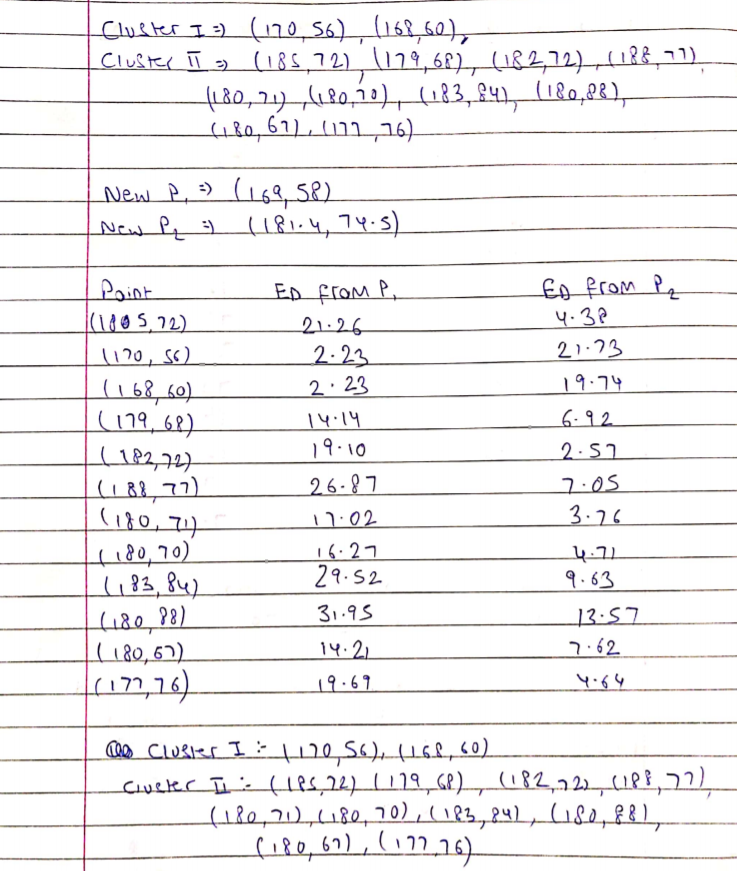 Cluster I => (170,56), (168,60),
Cluster II => (185,72), (179,68), (182,72), (188,77)
(180,71), (180,70), (183,84), (180,88),
(180,67), (177,76)
New P1 => (169,58)
New P2 => (181.4, 74.5)
Point ED from P1 ED from P2
(185,72) 21.26 4.38
(170,56) 2.23 21.73
(168,60) 2.23 19.74
(179,68) 14.14 6.92
(182,72) 19.10 2.57
(188,77) 26.87 7.05
(180,71) 17.02 3.76
(180,70) 16.27 4.71
(183,84) 29.52 9.63
(180,88) 31.95 13.57
(180,67) 14.21 7.62
(177,76) 19.69 4.64
Cluster I :- (170,56), (168,60)
Cluster II :- (185,72) (179,68), (182,72), (188,77)
(180,71), (180,70), (183,84), (180,88),
(180,67), (177,76)